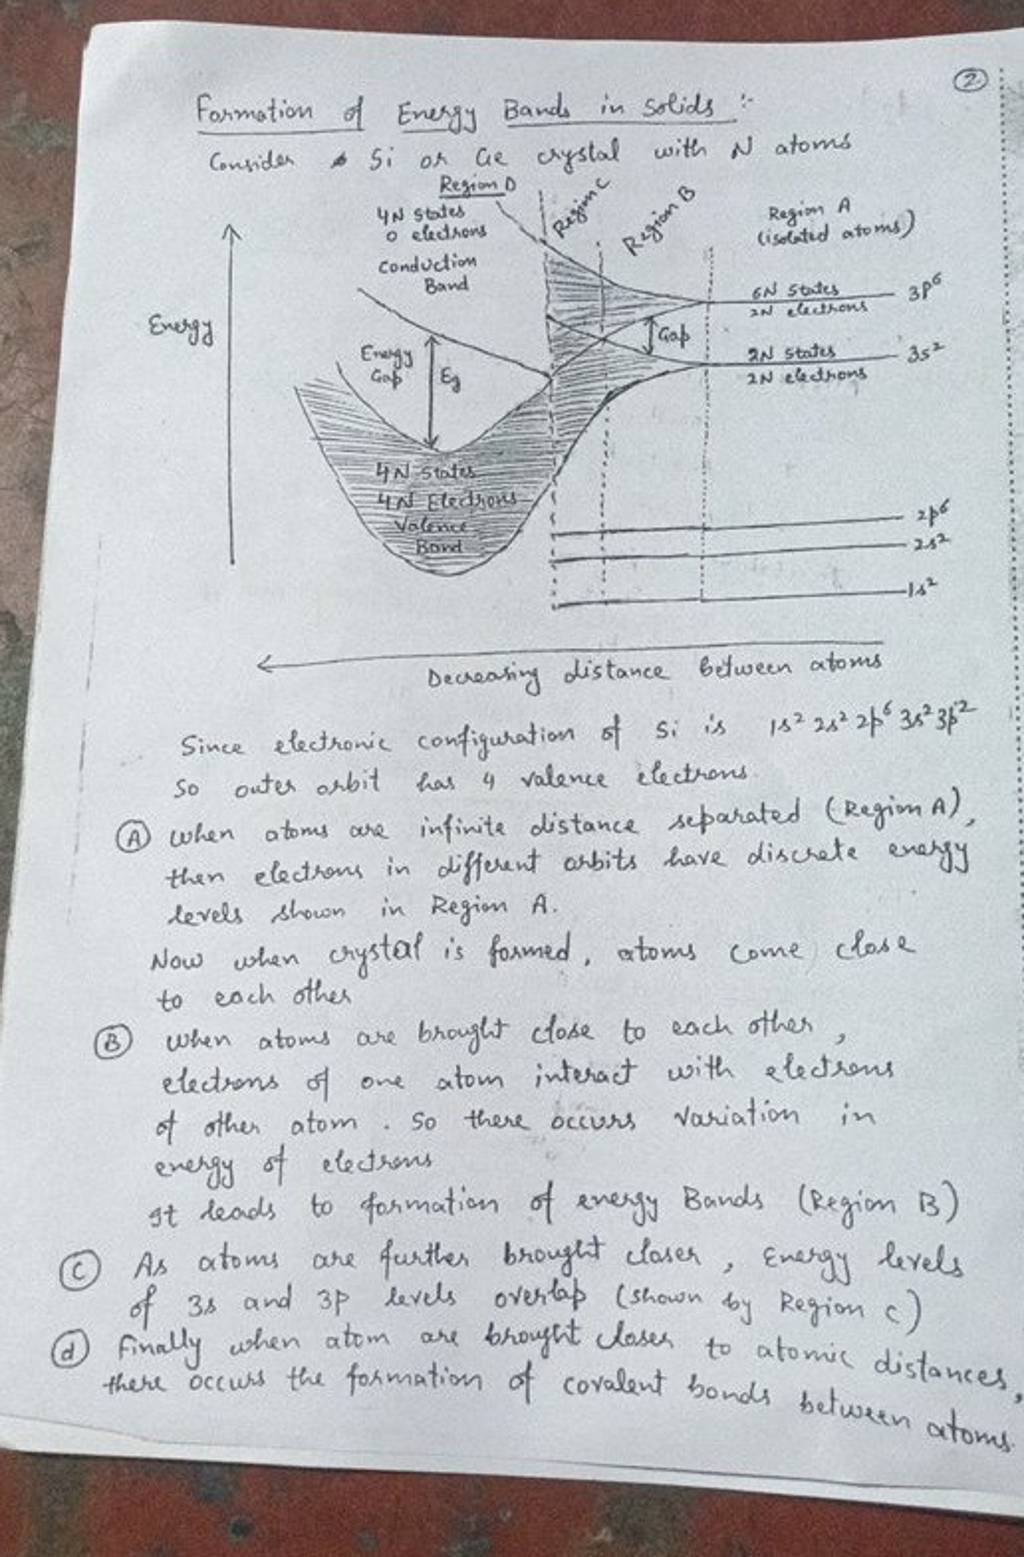 ②
Formation of Energy Bands in Solids :-
Consider Si or Ge crystal with N atoms
Region D
4N States
0 electrons
Conduction
Band
Region C
Region B
Region A
(isolated atoms)
6N States
2N electrons
3p⁶
Energy
Energy
Gap
Eg
Gap
2N States
2N electrons
3s²
4N States
4N Electrons
Valence
Band
2p⁶
2s²
1s²
Decreasing distance between atoms
Since electronic configuration of Si is 1s² 2s² 2p⁶ 3s² 3p²
So outer orbit has 4 valence electrons.
Ⓐ When atoms are infinite distance separated (Region A),
then electrons in different orbits have discrete energy
levels shown in Region A.
Now when crystal is formed, atoms come close
to each other
Ⓑ when atoms are brought close to each other,
electrons of one atom interact with electrons
of other atom. So there occurs variation in
energy of electrons
It leads to formation of energy Bands (Region B)
Ⓒ As atoms are further brought closer, Energy levels
of 3s and 3p levels overlap (shown by Region C)
ⓓ Finally when atom are brought closer to atomic distances,
there occurs the formation of covalent bonds between atoms.